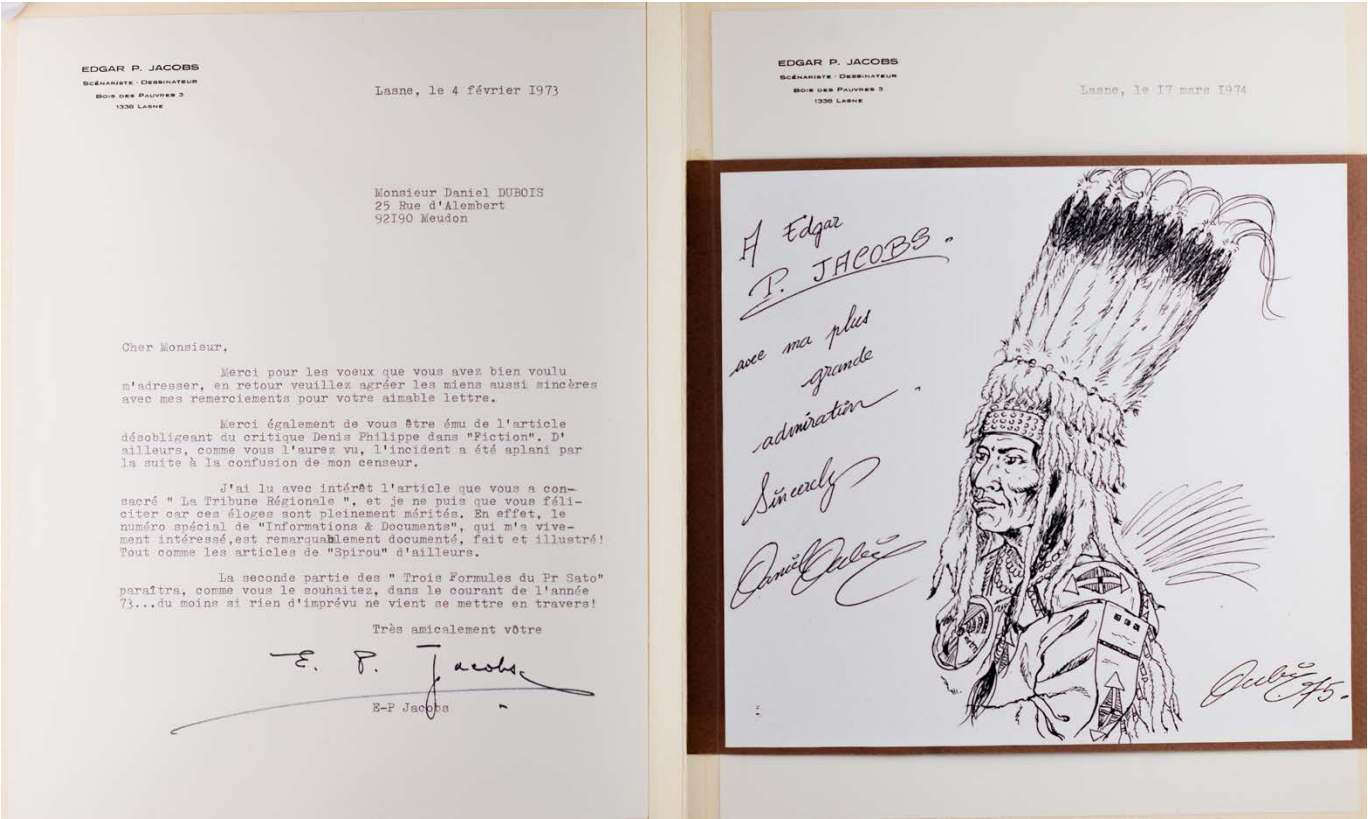 EDGAR P. JACOBS
SCÉNARISTE - DESSINATEUR
BOIS DES PAUVRES 3
1338 LASNE
Lasne, le 4 février I973
Monsieur Daniel DUBOIS
25 Rue d'Alembert
92I90 Meudon
Cher Monsieur,
Merci pour les voeux que vous avez bien voulu
m'adresser, en retour veuillez agréer les miens aussi sincères
avec mes remerciements pour votre aimable lettre.
Merci également de vous être ému de l'article
désobligeant du critique Denis Philippe dans "Fiction". D'
ailleurs, comme vous l'aurez vu, l'incident a été aplani par
la suite à la confusion de mon censeur.
J'ai lu avec intérêt l'article que vous a con-
sacré " La Tribune Régionale ", et je ne puis que vous féli-
citer car ces éloges sont pleinement mérités. En effet, le
numéro spécial de "Informations & Documents", qui m'a vive-
ment intéressé,est remarquablement documenté, fait et illustré!
Tout comme les articles de "Spirou" d'ailleurs.
La seconde partie des " Trois Formules du Pr Sato"
paraîtra, comme vous le souhaitez, dans le courant de l'année
73...du moins si rien d'imprévu ne vient se mettre en travers!
Très amicalement vôtre
E. P. Jacobs
E-P Jacobs
EDGAR P. JACOBS
SCÉNARISTE - DESSINATEUR
BOIS DES PAUVRES 3
1338 LASNE
Lasne, le I7 mars I974
A Edgar
P. JACOBS.
avec ma plus
grande
admiration.
Sincerely
Daniel Dubois
Dubois 75.